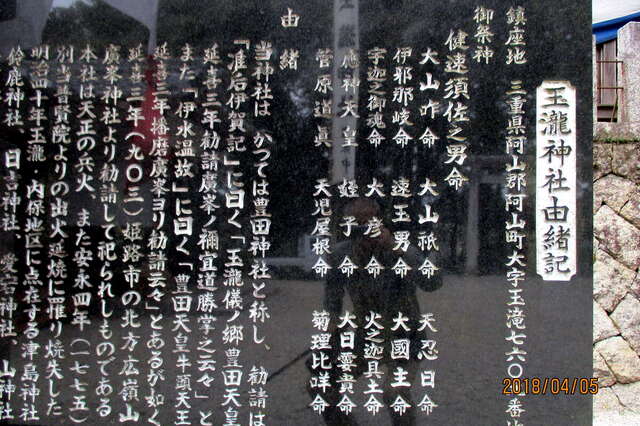 玉瀧神社由緒記
鎮座地 三重県阿山郡阿山町大字玉滝七六〇番地
御祭神
健速須佐之男命
大山咋命 大山祇命 天忍日命
伊邪那岐命 速玉男命 大國主命
宇迦之御魂命 大彦命 火之迦具土命
應神天皇 蛭子命 大日孁貴命
菅原道眞 天児屋根命 菊理比咩命
由緒
当神社は かつては豊田神社と称し、勧請は
「准后伊賀記」に曰く「玉瀧儀ノ郷豊田天皇
延喜三年勧請廣峯ノ禰宜道勝掌之云々」と
また「伊水温故」に曰く「豊田天皇牛頭天王
延喜三年播磨廣峯ヨリ勧請云々」とあるが如く
延喜三年(九〇三)姫路市の北方広嶺山
廣峯神社より勧請して祀られしものである
本社は天正の兵火、また安永四年(一七七五)
別当普賢院よりの出火延焼に罹り焼失した
明治四十年玉瀧・内保地区に点在する津島神社
鈴鹿神社、日吉神社、愛宕神社、山神社
2018/04/05